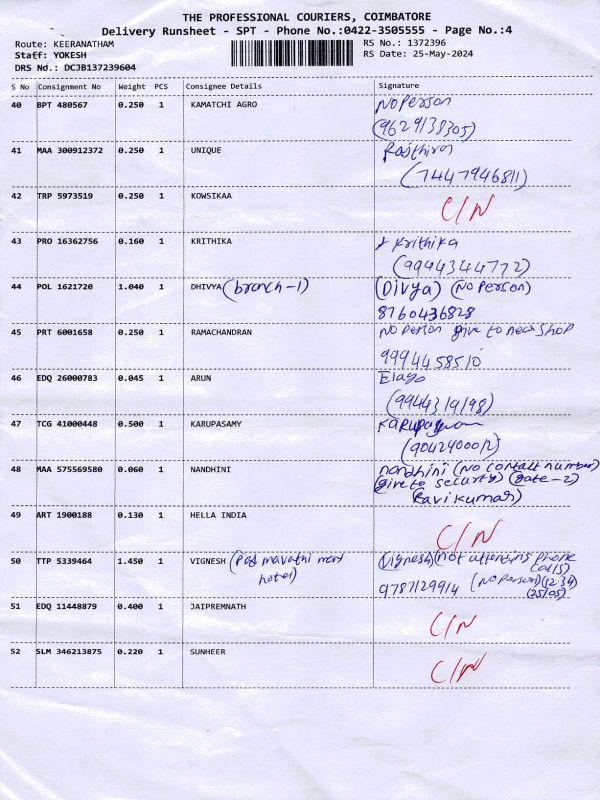 THE PROFESSIONAL COURIERS, COIMBATORE
Delivery Runsheet - SPT - Phone No.:0422-3505555 - Page No.:4
Route: KEERANATHAM
RS No.: 1372396
Staff: YOKESH
RS Date: 25-May-2024
DRS No.: DCJB137239604
S No Consignment No Weight PCS Consignee Details Signature
40 BPT 480567 0.250 1 KAMATCHI AGRO No Person
(9629138305)
41 MAA 300912372 0.250 1 UNIQUE
(7447946811)
42 TRP 5973519 0.250 1 KOWSIKAA C/N
43 PRO 16362756 0.160 1 KRITHIKA Krithika
(9944344772)
44 POL 1621720 1.040 1 DHIVYA (branch-1) (Divya) (No Person)
8760436828
45 PRT 6001658 0.250 1 RAMACHANDRAN No Person give to near shop
9994458510
46 EDQ 26000783 0.045 1 ARUN
(9944319198)
47 TCG 41000448 0.500 1 KARUPASAMY
(9042400012)
48 MAA 575569580 0.060 1 NANDHINI nandhini (No contact number)
(give to security) (gate-2)
(Ravikumar)
49 ART 1900188 0.130 1 HELLA INDIA C/N
50 TTP 5339464 1.450 1 VIGNESH (Vignesh) (not attending phone
hotel) calls)
9787129914 (No Person) (12:34)
(25/05)
51 EDQ 11448879 0.400 1 JAIPREMNATH C/N
52 SLM 346213875 0.220 1 SUNHEER C/N